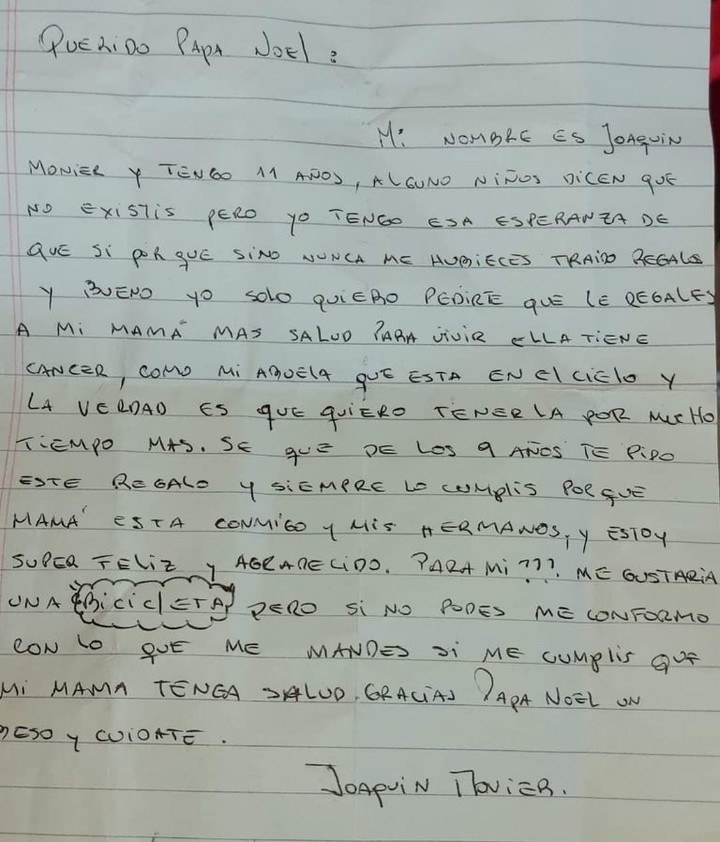 QUERIDO PAPA NOEL:
Mi NOMBRE ES JOAQUIN
MONIER Y TENGO 11 AÑOS, ALGUNO NIÑOS DICEN QUE
NO EXISTIS PERO YO TENGO ESA ESPERANZA DE
QUE SI POR QUE SINO NUNCA ME HUBIECES TRAIDO REGALOS
Y BUENO YO SOLO QUIERO PEDIRTE QUE LE REGALES
A Mi MAMÁ MAS SALUD PARA VIVIR ELLA TIENE
CANCER, COMO Mi ABUELA QUE ESTA EN El CIELO Y
LA VERDAD ES QUE QUIERO TENERLA POR MUCHO
TIEMPO MAS. SE QUE DE LOS 9 AÑOS TE PIDO
ESTE REGALO Y SIEMPRE LO CUMPLIS PORQUE
MAMÁ ESTA CONMIGO Y MIS HERMANOS, Y ESTOY
SUPER FELIZ Y AGRADECIDO. PARA Mi ??? ME GUSTARIA
UNA BICICLETA PERO SI NO PODES ME CONFORMO
CON LO QUE ME MANDES SI ME CUMPLIS QUE
MI MAMA TENGA SALUD. GRACIAS PAPA NOEL UN
BESO Y CUIDATE.
JOAQUIN MONIER.